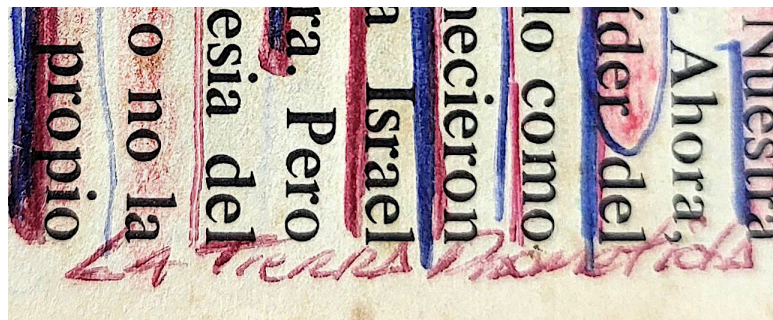 Nuestra
. Ahora,
íder del
lo como
necieron
a Israel
ra. Pero
esia del
o no la
propio
La Tierra Prometida